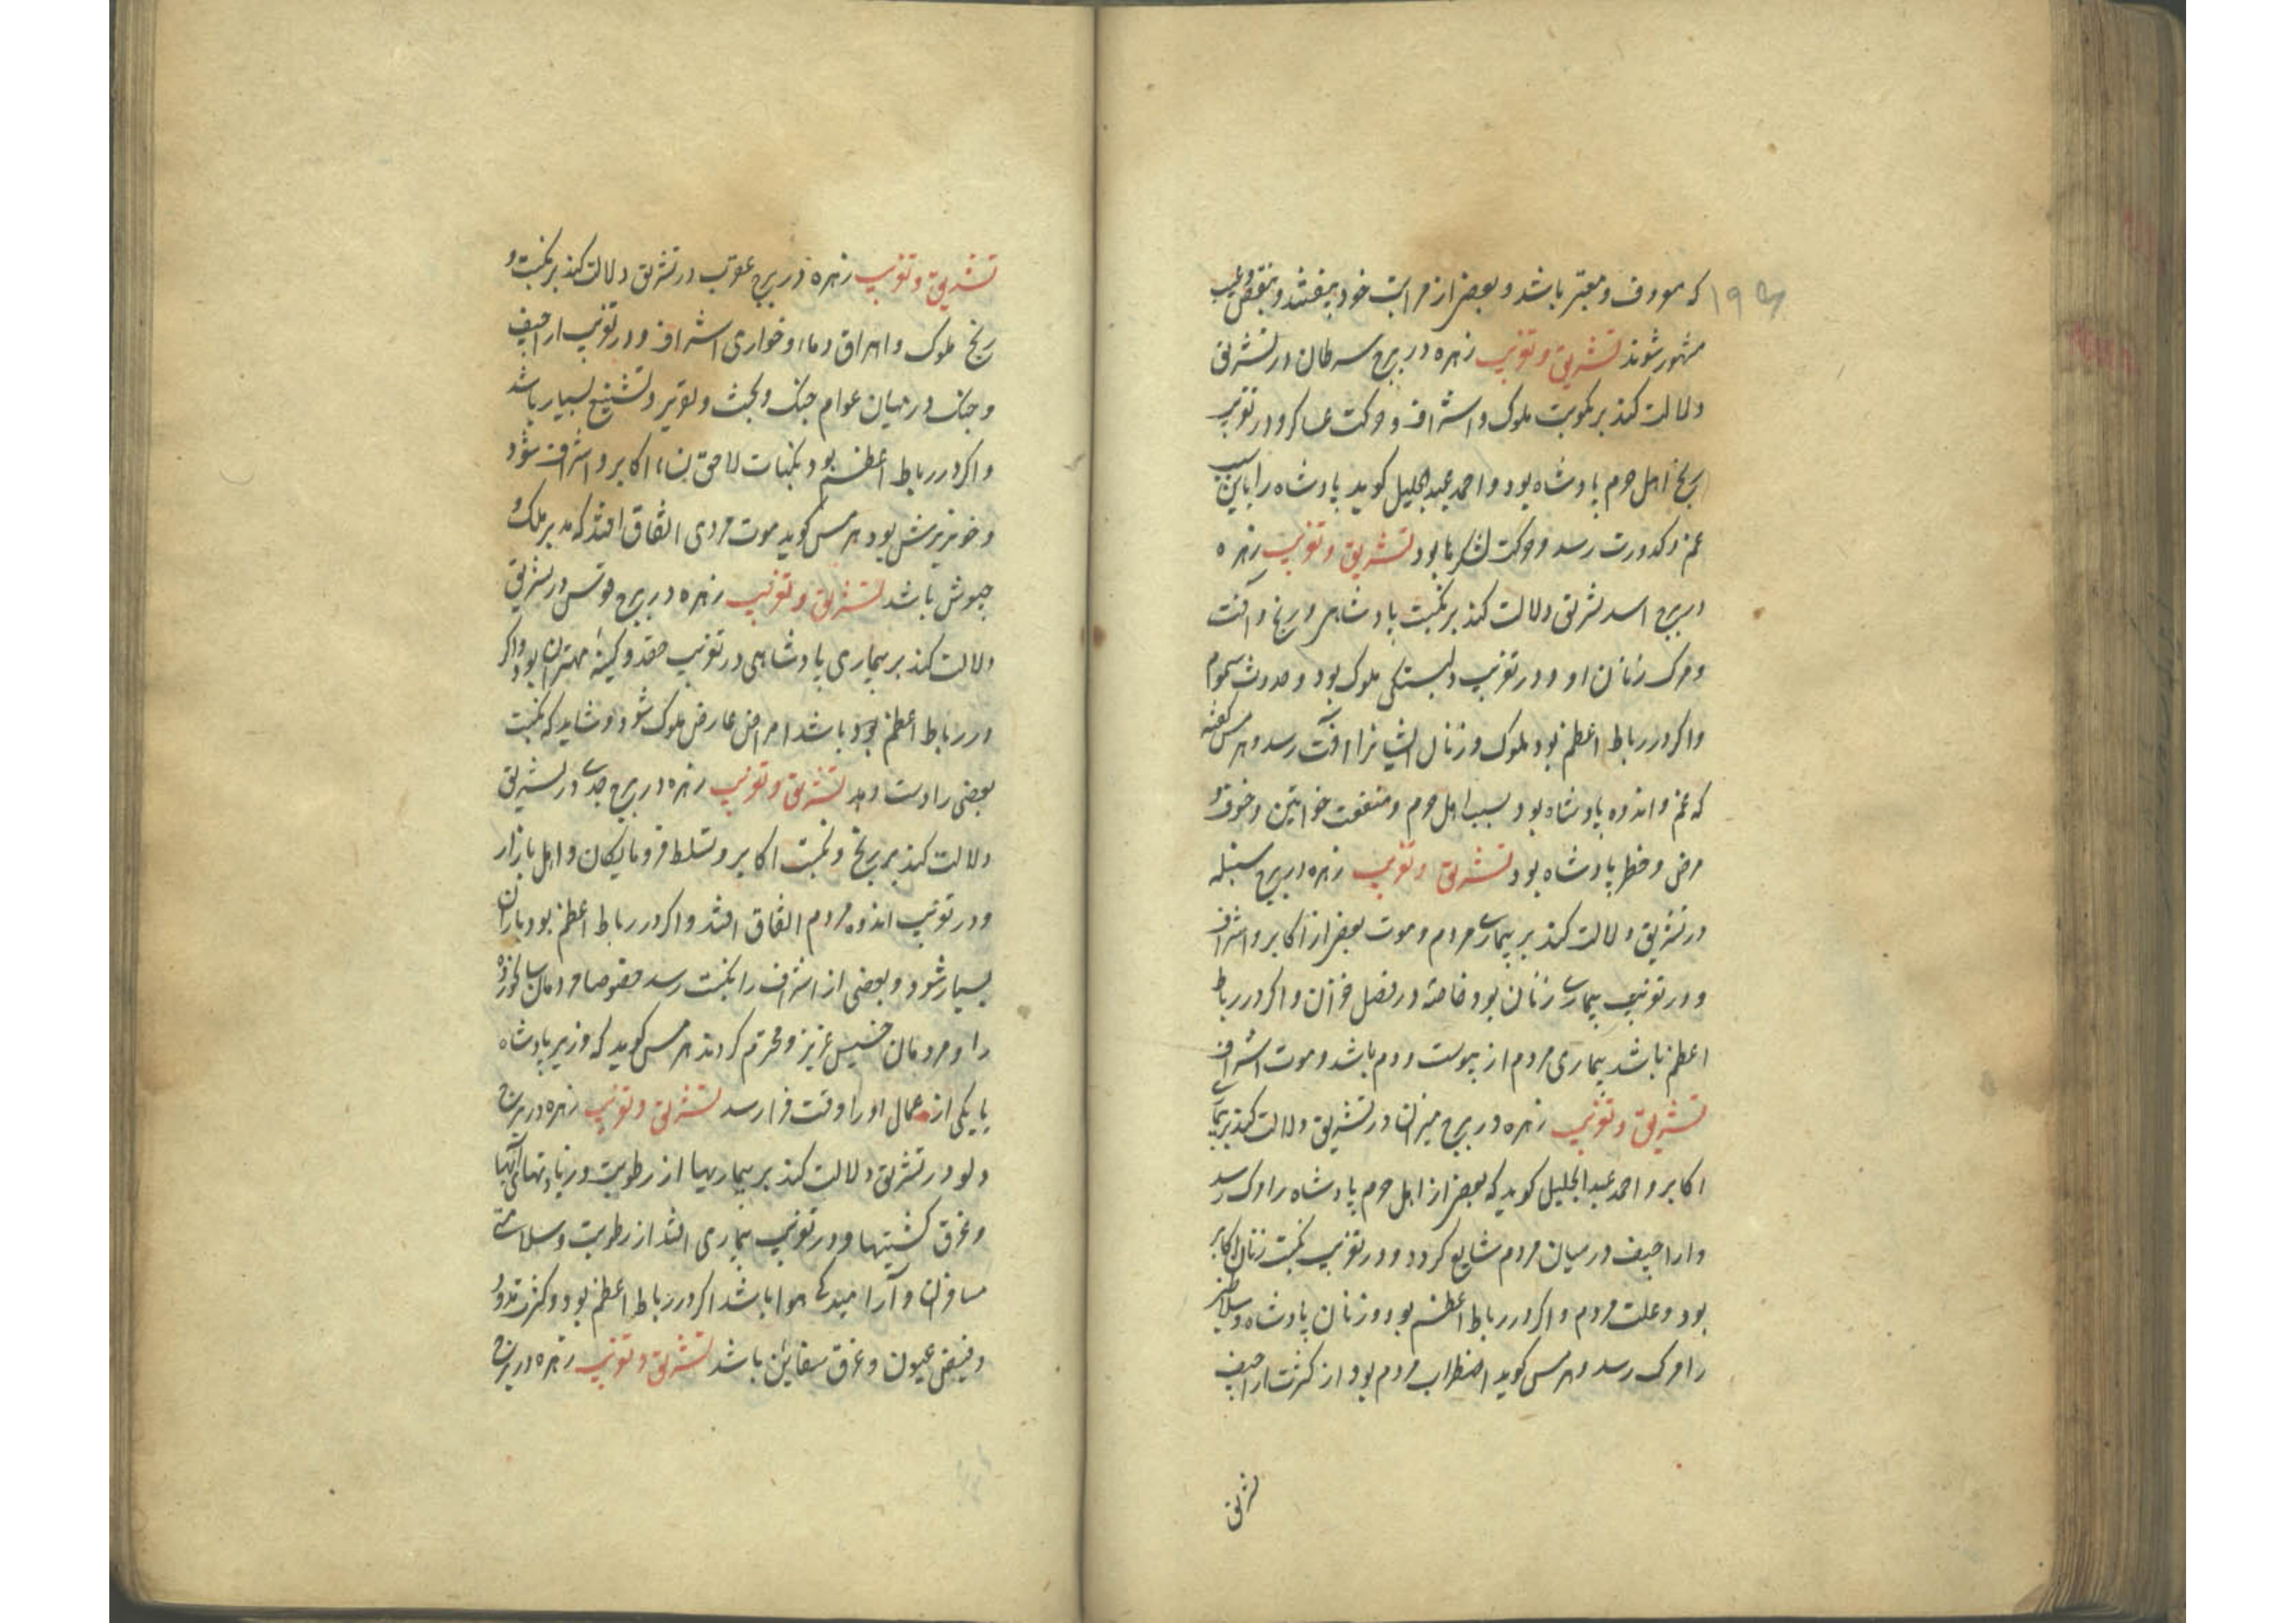 که معروف و معتبر باشد و بعضی از مراتب خود بیفتند و بنقص و عیب
مشهور شوند تشریق و تغریب زهره در برج سرطان در تشریق
دلالت کند بر ملوک و اشراف و حرکت عساکر و در تغریب
رنج اهل حرم پادشاه بود و احمد عبدالجلیل کوید پادشاه را باین سبب
غم و کدورت رسد و حرکت لشکرها بود تشریق و تغریب زهره
در برج اسد تشریق دلالت کند بر نکبت پادشاهی و رنج و آفت
و مرک زنان او و در تغریب دلبستکی ملوک بود و حدوث سموم
واکر در رباط اعظم بود ملوک و زنان ایشانرا آفت رسد و هرمس کفته
که غم و اندوه پادشاه بود بسبب اهل حرم و منفعت خواتین و خوف و
مرض و خطر پادشاه بود تشریق و تغریب زهره در برج سنبله
در تشریق دلالت کند بر بیماری مردم و موت بعضی از اکابر و اشراف
و در تغریب بیماری زنان بود خاصه در فصل خزان و اکر در رباط
اعظم باشد بیماری مردم از یبوست و دم باشد و موت اشراف
تشریق و تغریب زهره در برج میزان در تشریق دلالت کند بر
اکابر و احمد عبدالجلیل کوید که بعضی از اهل حرم پادشاه را مرک رسد
و اراجیف در میان مردم شایع کردد و در تغریب نکبت زنان اکابر
بود و علت مردم و اکر در رباط اعظم بود و زنان پادشاه و سلاطین
را مرک رسد و هرمس کوید اضطراب مردم بود از کثرت اراجیف
تشریق
تشریق و تغریب زهره در برج عقرب در تشریق دلالت کند بر نکبت و
رنج ملوک و اهراق دماء و خواری اشراف و در تغریب اراجیف
و جنک در میان عوام جنک و بحث و تشنیع بسیار باشد
و اکر در رباط اعظم بود نکبات لاحق اکابر و اشراف شود
و خونریزش بود هرمس کوید موت مردی اتفاق افتد که مدبر ملک و
جیوش باشد تشریق و تغریب زهره در برج قوس در تشریق
دلالت کند بر بیماری پادشاهی در تغریب حقد و کینه مهتران بود و اکر
در رباط اعظم بود باشد امراض عارض ملوک شود و شاید که نکبت
بعضی را دست دهد تشریق و تغریب زهره در برج جدی در تشریق
دلالت کند بر رنج و نکبت اکابر و تسلط فرومایکان و اهل بازار
و در تغریب اندوه مردم اتفاق افتد و اکر در رباط اعظم بود باران
بسیار شود و بعضی از اشراف را نکبت رسد خصوصا مردمان سالخورده
را و مردمان خسیس عزیز و محترم کردند هرمس کوید که وزیر پادشاه
یا یکی از عمال او را وقت فرا رسد تشریق و تغریب زهره در برج
دلو در تشریق دلالت کند بر بیماریها از رطوبت و زیادتهای آبها
و غرق کشتیها و در تغریب بیماری افتد از رطوبت و سلامتی
مسافران و آرامیدکی هوا باشد اکر در رباط اعظم بود و کثرت
و فیض عیون و غرق سفاین باشد تشریق و تغریب زهره در برج